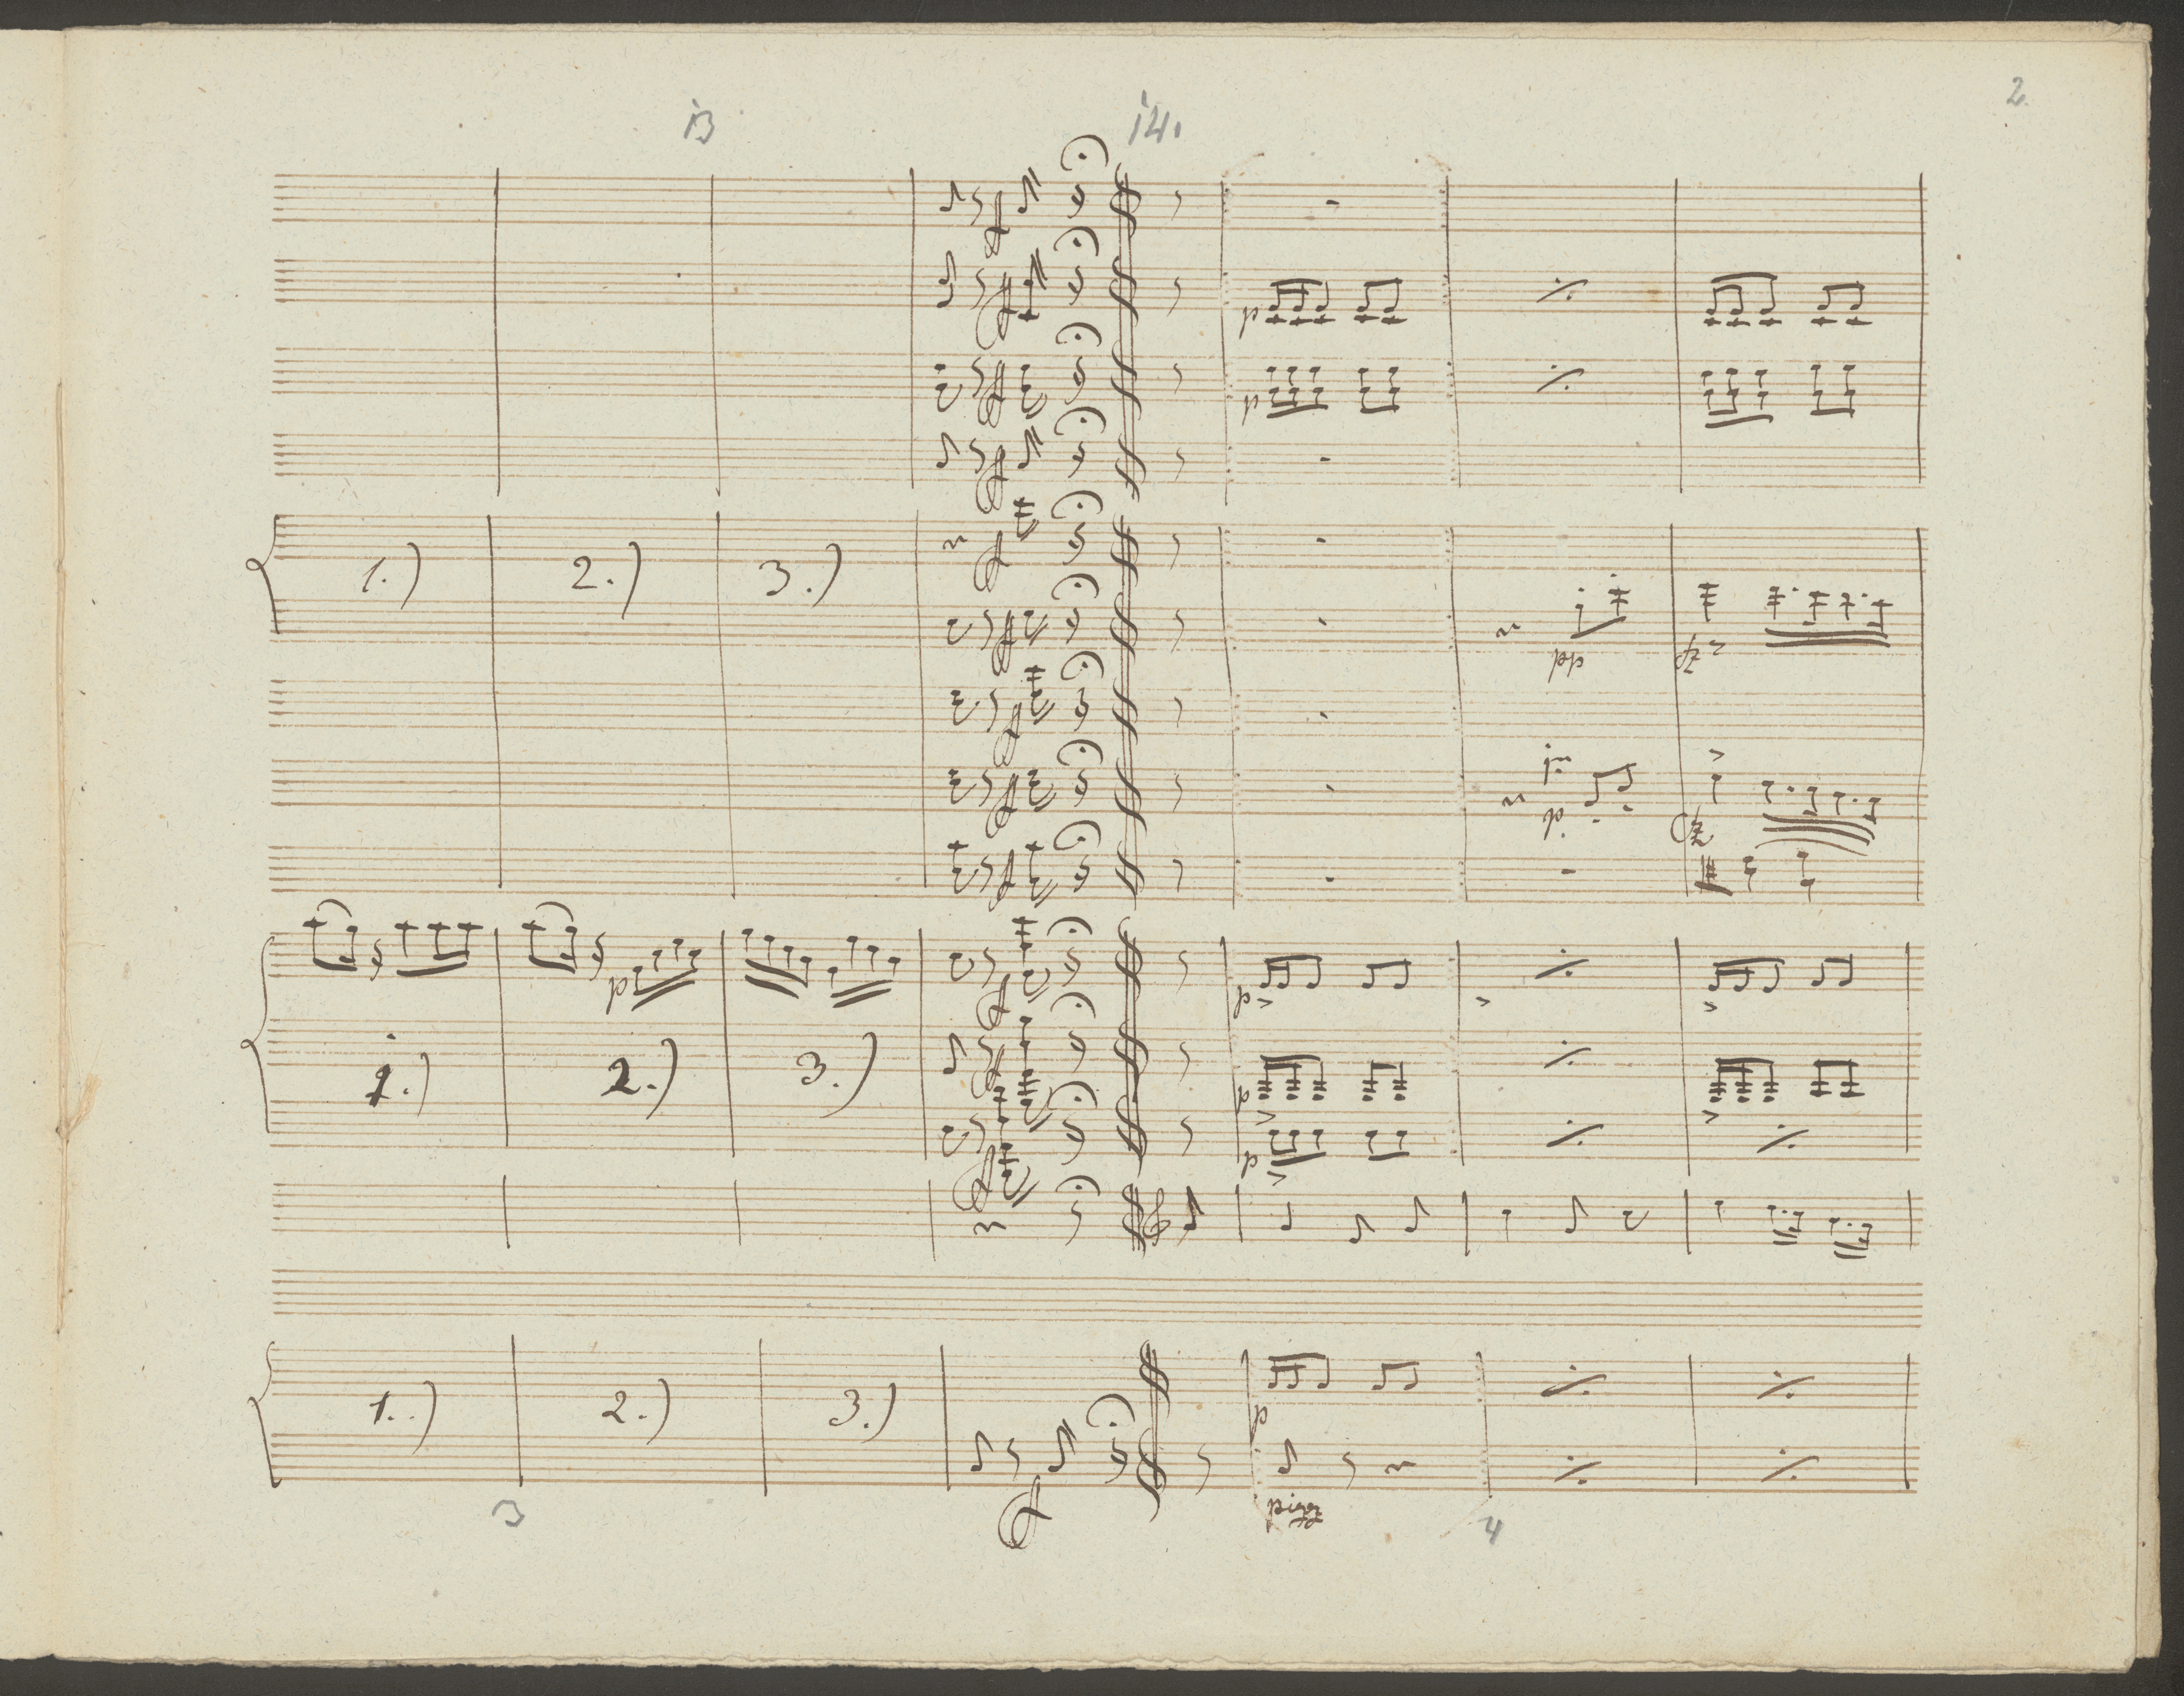 2.
13 14.
p
p
1.) 2.) 3.)
pp fz
p. fz
p p
1.) 2.) 3.) p
p
1.) 2.) 3.) p
pizz
3 4